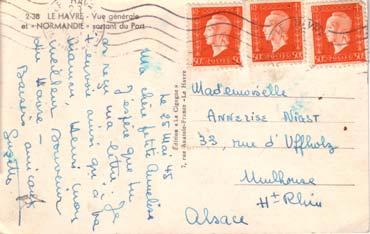 2-38 LE HAVRE - Vue générale
et "NORMANDIE" sortant du Port
Le 25 Mai 45
Ma chère petite Annelise
J'espère que tu
as reçu ma lettre. Je
t'envoie ainsi qu'à ta
maman
meilleur souvenir
du Havre
Baisers
Suzette
Edition "La Cigogne"
7, rue Anatole-France - Le Havre
Mademoiselle
ANNELISE
33, rue d'Uffholz
Mulhouse
Ht Rhin
Alsace